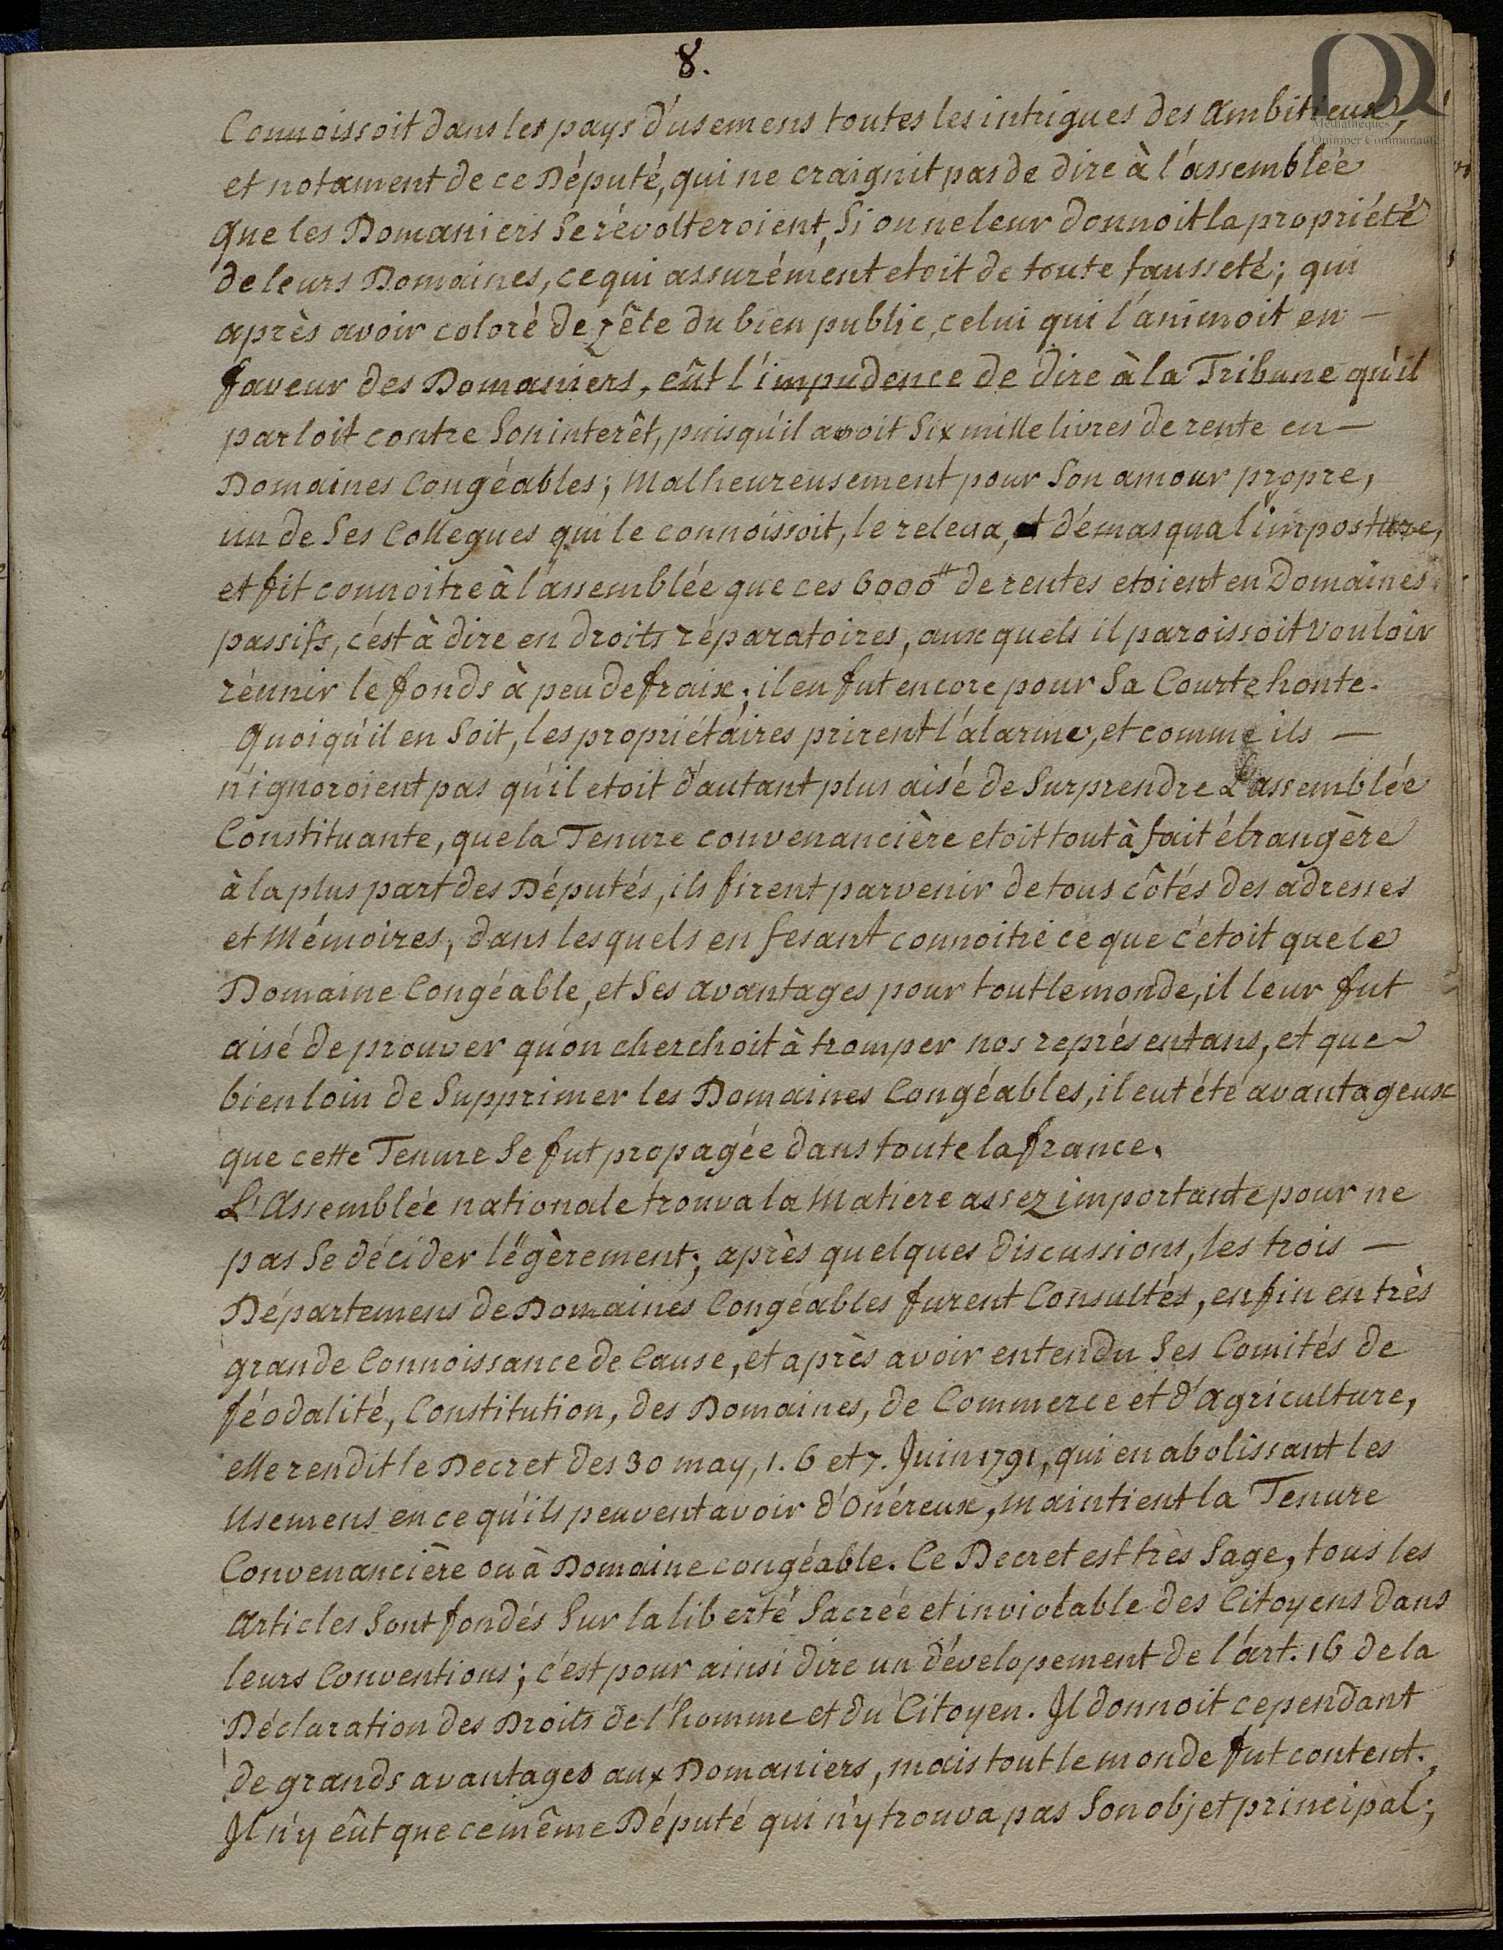 8.
Connoissoit dans les pays d'usemens toutes les intrigues des ambitieux,
et notament de ce Député, qui ne craignit pas de dire à l'assemblée
que les Domaniers se révolteroient, si on ne leur donnoit la propriété
de leurs Domaines, ce qui assurément etoit de toute fausseté; qui
après avoir coloré de zêle du bien public, celui qui l'animoit en —
faveur des Domaniers, eût l'impudence de dire à la Tribune qu'il
parloit contre son interêt, puisqu'il avoit six mille livres de rente en —
Domaines Congéables; Malheureusement pour son amour propre,
un de ses Collegues qui le connoissoit, le releva, et démasqua l'imposture,
et fit connoitre à l'assemblée que ces 6000# de rentes etoient en Domaines
passifs, c'est à dire en droits réparatoires, aux quels il paroissoit vouloir
réunir le fonds à peu de fraix; il en fut encore pour sa Courte honte.
Quoiqu'il en soit, les propriétaires prirent l'alarme, et comme ils —
n'ignoroient pas qu'il etoit d'autant plus aisé de surprendre L'assemblée
Constituante, que la Tenure convenancière etoit tout à fait étrangère
à la plus part des Députés, ils firent parvenir de tous côtés des adresses
et Mémoires, dans lesquels en fesant connoitre ce que c'étoit que le
Domaine Congéable, et ses avantages pour tout le monde, il leur fut
aisé de prouver qu'on cherchoit à tromper nos représentans, et que
bien loin de supprimer les Domaines Congéables, il eut été avantageux
que cette Tenure se fut propagée dans toute la france.
L'Assemblée nationale trouva la Matiere assez importante pour ne
pas se décider légèrement; après quelques discussions, les trois —
Départemens de Domaines Congéables furent Consultés, enfin en très
grande Connoissance de Cause, et après avoir entendu ses Comités de
féodalité, Constitution, des Domaines, de Commerce et d'agriculture,
elle rendit le Decret des 30 may, 1. 6 et 7. Juin 1791, qui en abolissant les
Usemens en ce qu'ils peuvent avoir d'Onéreux, maintient la Tenure
Convenancière ou à Domaine congéable. Ce Decret est très sage, tous les
articles sont fondés sur la liberté Sacrée et inviolable des Citoyens dans
leurs Conventions; c'est pour ainsi dire un dévelopement de l'art. 16 de la
Déclaration des Droits de l'homme et du Citoyen. Il donnoit cependant
de grands avantages aux Domaniers, mais tout le monde fut content.
Il n'y eût que ce même Député qui n'y trouva pas son objet principal;
Médiathèques
Quimper Communauté